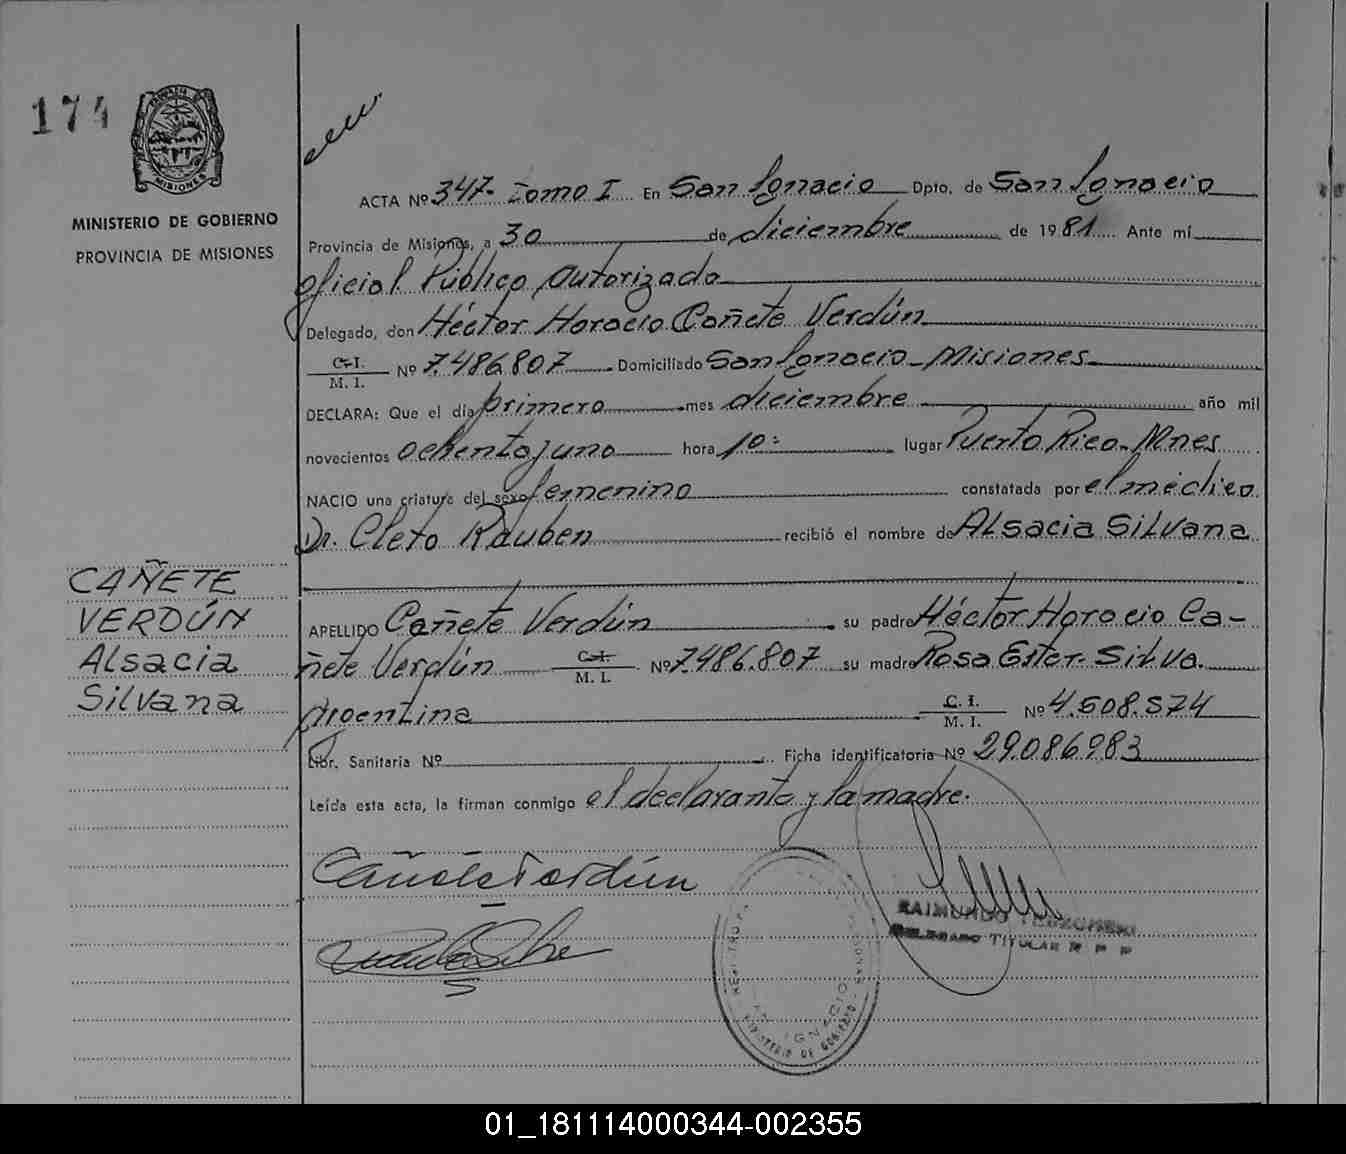 174
MISIONES
MINISTERIO DE GOBIERNO
PROVINCIA DE MISIONES
ACTA Nº 347- Tomo I En San Ignacio Dpto. de San Ignacio
Provincia de Misiones, a 30 de diciembre de 1981 Ante mí
Oficial Público Autorizado
Delegado, don Héctor Horacio Cañete Verdún
C. I.
M. I. Nº 7.486.807 Domiciliado San Ignacio - Misiones
DECLARA: Que el día primero mes diciembre año mil
novecientos ochenta y uno hora 10: lugar Puerto Rico - Mnes
NACIO una criatura del sexo femenino constatada por el médico
Dr. Cleto Rauben recibió el nombre de Alsacia Silvana
CAÑETE
VERDÚN
Alsacia
Silvana
APELLIDO Cañete Verdún su padre Héctor Horacio Ca-
ñete Verdún C. I. M. I. Nº 7.486.807 su madre Rosa Ester Silva
Argentina C. I. M. I. Nº 4.508.574
Libr. Sanitaria Nº Ficha identificatoria Nº 29.086.983
Leída esta acta, la firman conmigo el declarante y la madre.
Cañete Verdún
RAIMUNDO
DELEGADO TITULAR R P P
IGNACIO
MINISTERIO DE GOBIERNO
01_181114000344-002355